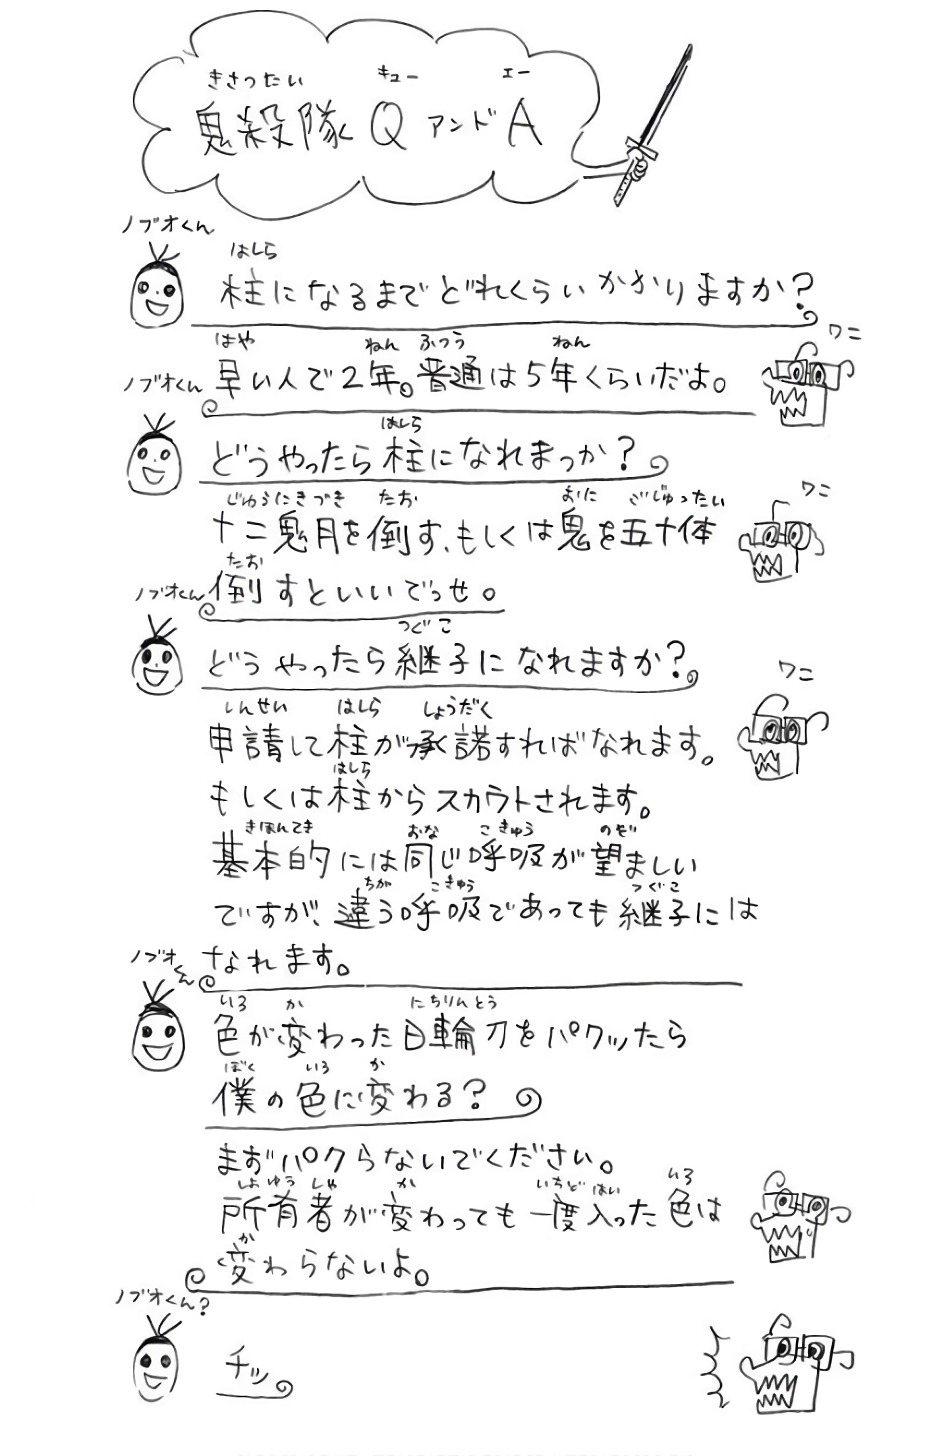 きさったい キュー エー
鬼殺隊 Q アンド A
ノブオくん
はしら
柱になるまでどれくらいかかりますか?
ワニ
はや ねん ふつう ねん
早い人で2年。普通は5年くらいだよ。
ノブオくん
はしら
どうやったら柱になれまっか?
ワニ
じゅうにきづき たお おに ごじゅったい
十二鬼月を倒す、もしくは鬼を五十体
たお
倒すといいでっせ。
ノブオくん
つぐこ
どうやったら継子になれますか?
ワニ
しんせい はしら しょうだく
申請して柱が承諾すればなれます。
はしら
もしくは柱からスカウトされます。
きほんてき おな こきゅう のぞ
基本的には同じ呼吸が望ましい
ちが こきゅう つぐこ
ですが、違う呼吸であっても継子には
なれます。
ノブオくん
いろ か にちりんとう
色が変わった日輪刀をパクッたら
ぼく いろ か
僕の色に変わる?
まずパクらないでください。
しょゆうしゃ か いちど はい いろ
所有者が変わっても一度入った色は
か
変わらないよ。
ノブオくん?
チッ